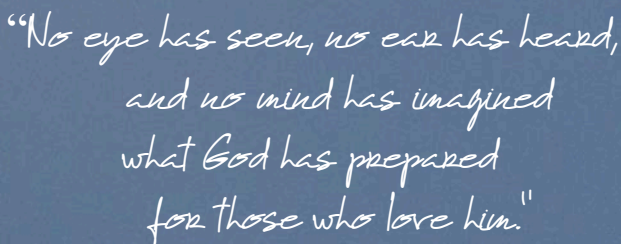 “No eye has seen, no ear has heard,
and no mind has imagined
what God has prepared
for those who love him."